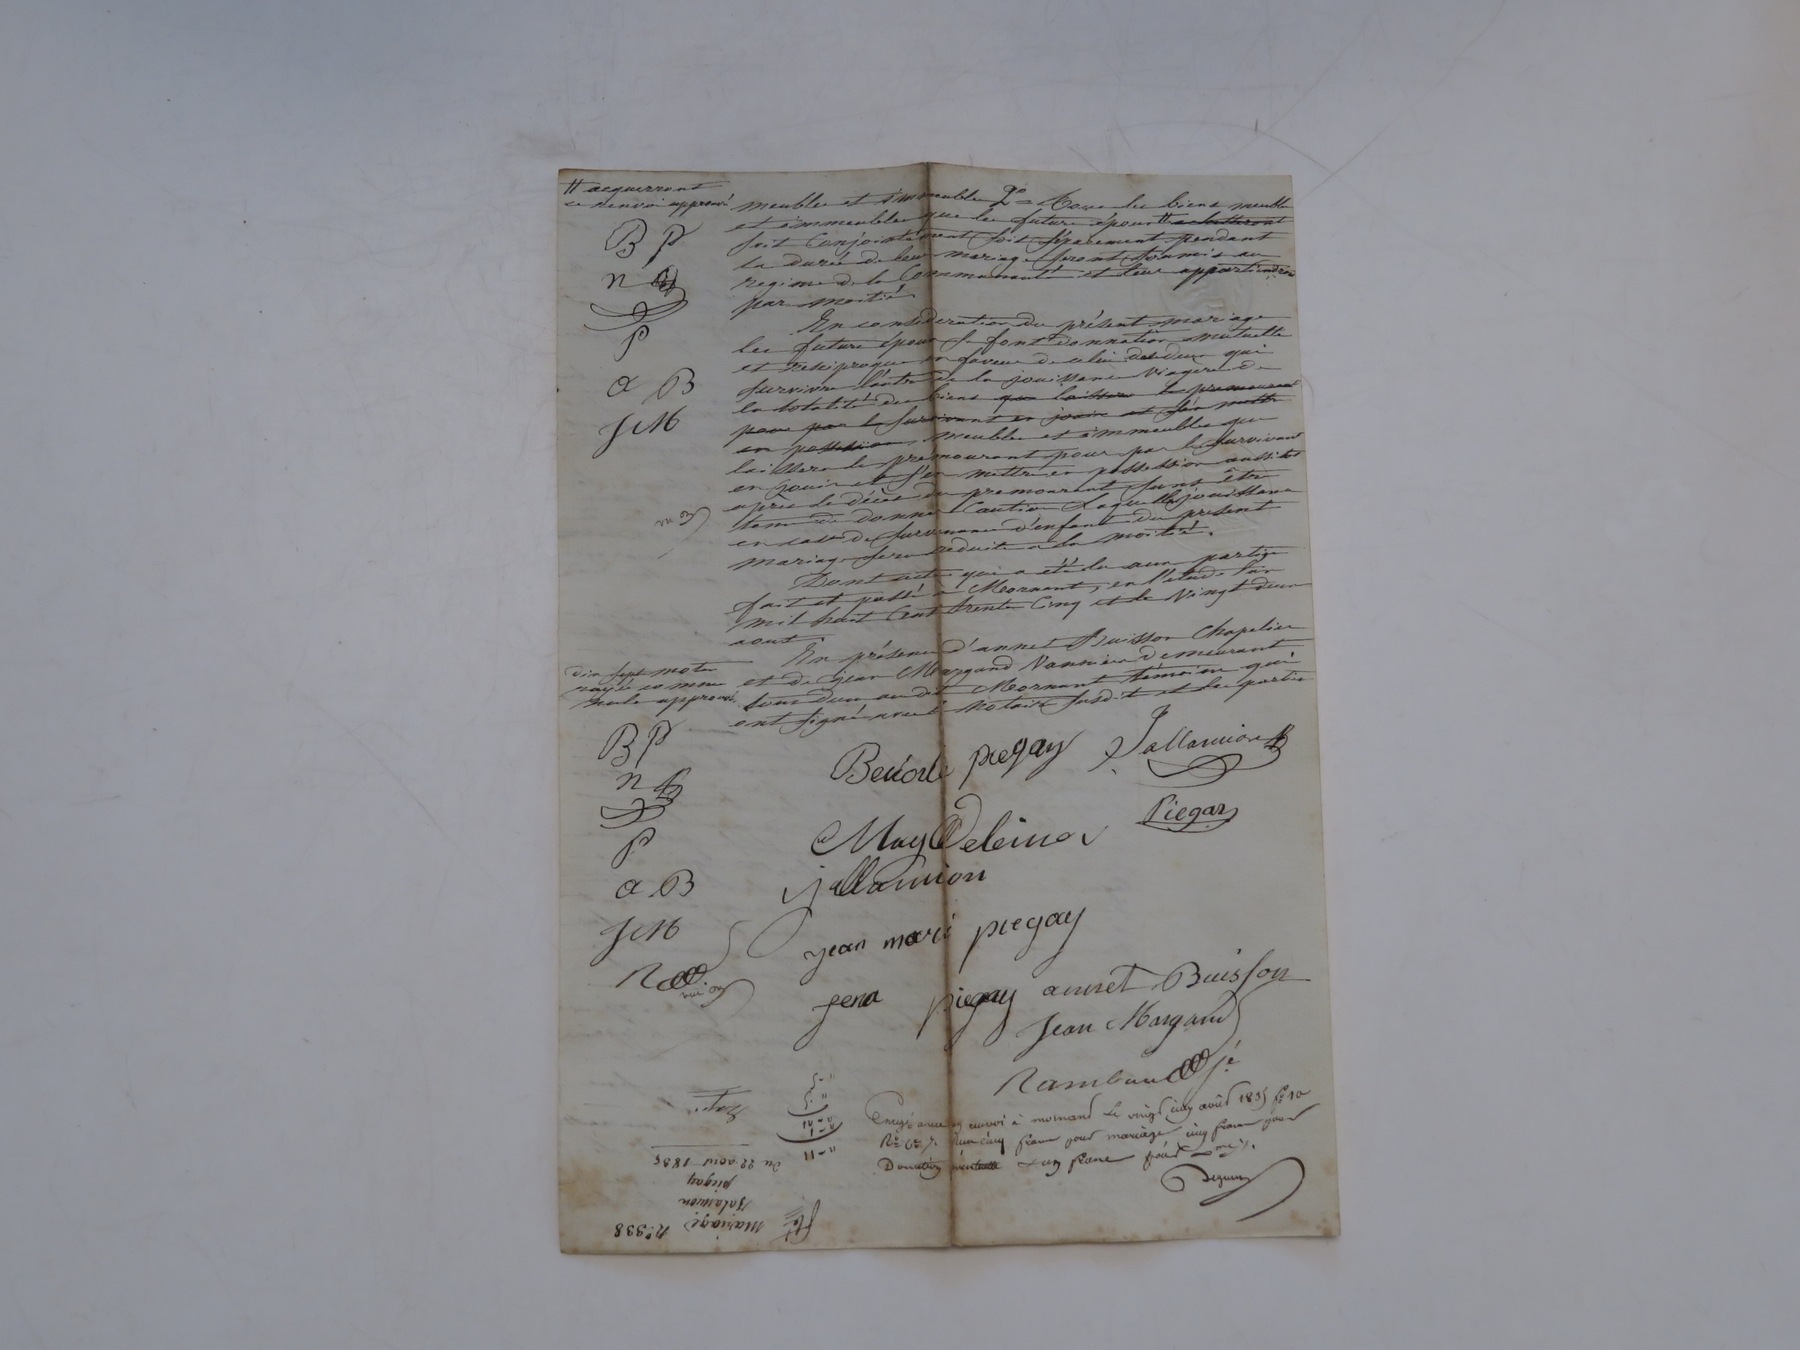 # acquerront
ce renvoi approuvé
B P
n
P
a B
J M
meubles et immeubles 2° = Tous les biens meubles
et immeubles que les futurs époux # acheteront
soit Conjointement soit séparement pendant
la durée de leur mariage seront soumis au
regime de la Communauté et leur appartiendra
par moitié.
En consideration du présent mariage
les futurs époux se font donnation mutuelle
et reciproque en faveur de celui des deux qui
survivra l'autre de la jouissance viagere de
la totalité des biens que laissera le premourant
pour par le survivant en jouir et s'en mettre
en possession, meubles et immeubles que
laissera le premourant pour par le survivant
en jouir et s'en mettre en possession aussitôt
après le décès du premourant sans être
tenu de donner Caution Laquelle jouissance
en cas de survenance d'enfant du présent
mariage sera réduite à la moitié.
Dont acte qui a été lu aux parties
fait et passé à Mornant, en l'étude l'an
mil huit Cent trente Cinq et le Vingt deux
aout.
En présence d'annet Buisson Chapelier
et de jean Margand Vannier demeurant
tous deux au dit Mornant témoins qui
ont signé avec le Notaire susdit et les parties
dix sept mots
rayés comme
nuls approuvés
B P
n
P
a B
J M
R
Benoite piegay Jallamion
Piegay
May Deleino
jallamion
jean marie piegay
piegay annet Buisson
Jean Margand
Rambaud
Enregistré à mornant Le vingt cinq août 1835 f° 10
R° cinq francs pour mariage cinq francs pour
Donation mutuelle & un franc pour Dme %.
N° 338
Mariage
Jalamion
piegay
Du 22 aout 1835